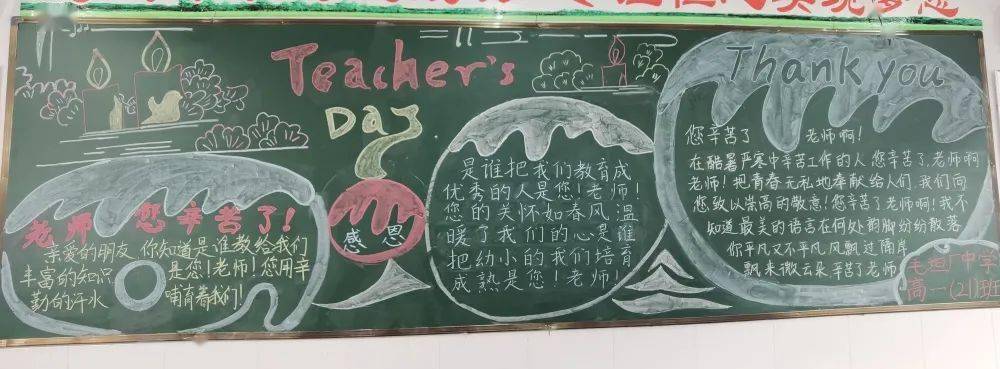 Teacher's
Day
Thank you
老师 您辛苦了!
亲爱的朋友 你知道是谁教给我们
丰富的知识 是您!老师!您用辛
勤的汗水 哺育着我们!
感 恩
是谁把我们教育成
优秀的人是您!老师!
您的关怀如春风温
暖了我们的心是谁
把幼小的我们培育
成熟是您!老师!
您辛苦了 老师啊!
在酷暑严寒中辛苦工作的人您辛苦了.老师啊
老师!把青春无私地奉献给人们.我们向
您致以崇高的敬意!您辛苦了老师啊!我不
知道最美的语言在何处韵脚纷纷散落
你平凡又不平凡.风飘过隔岸
飘来微云朵辛苦了老师
毛坦厂中学
高一(21)班